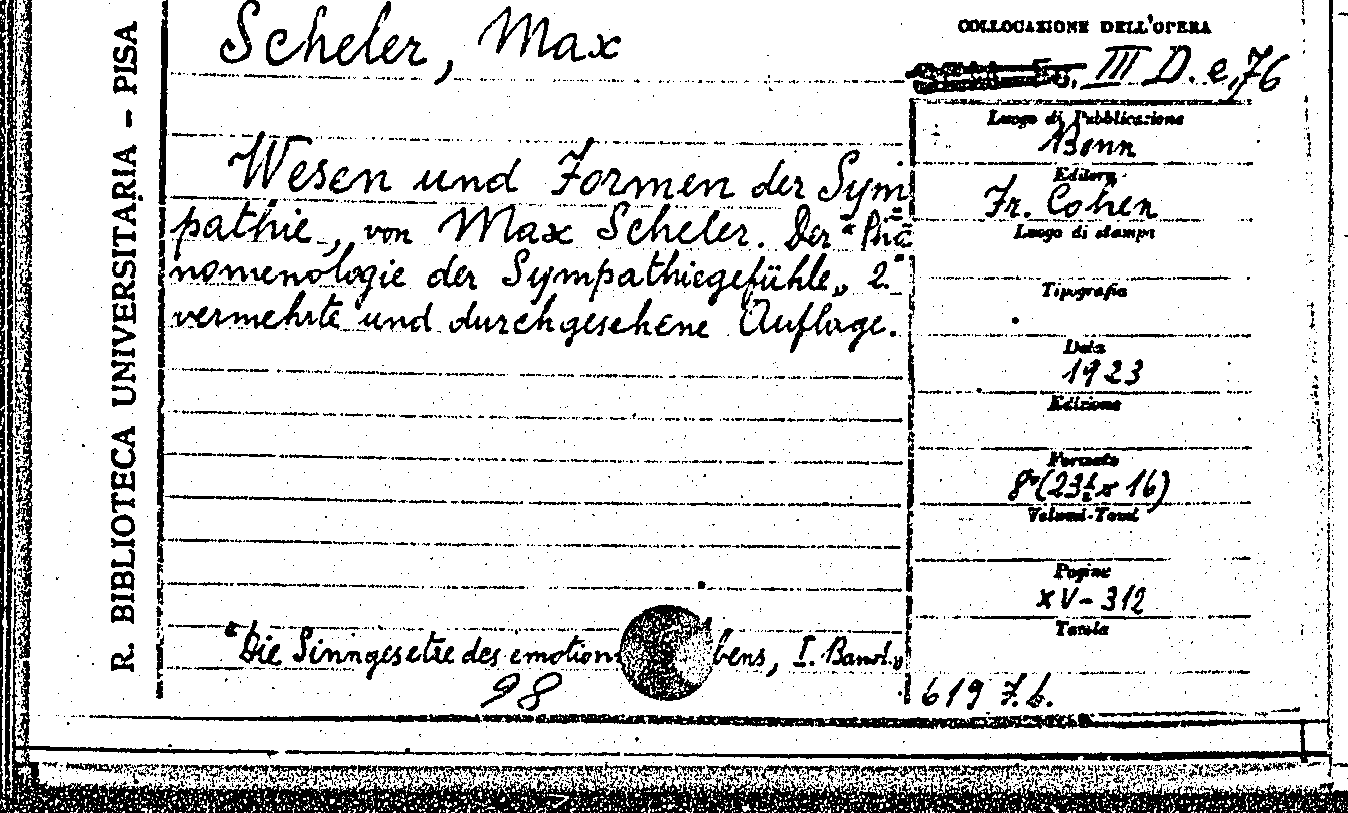 R. BIBLIOTECA UNIVERSITARIA - PISA
Scheler, Max
Wesen und Formen der Sym
pathie, von Max Scheler. Der "Phä
nomenologie der Sympathiegefühle„ 2.
vermehrte und durchgesehene Auflage.
"Die Sinngesetze des emotion bens, I. Band.„
98
COLLOCAZIONE DELL'OPERA
III D. e, 76
Luogo di Pubblicazione
Bonn
Editore
Fr. Cohen
Luogo di stampa
Tipografia
Data
1923
Edizione
Formato
8º (23½ x 16)
Volumi-Tomi
Pagine
XV - 312
Tavole
619 F.b.